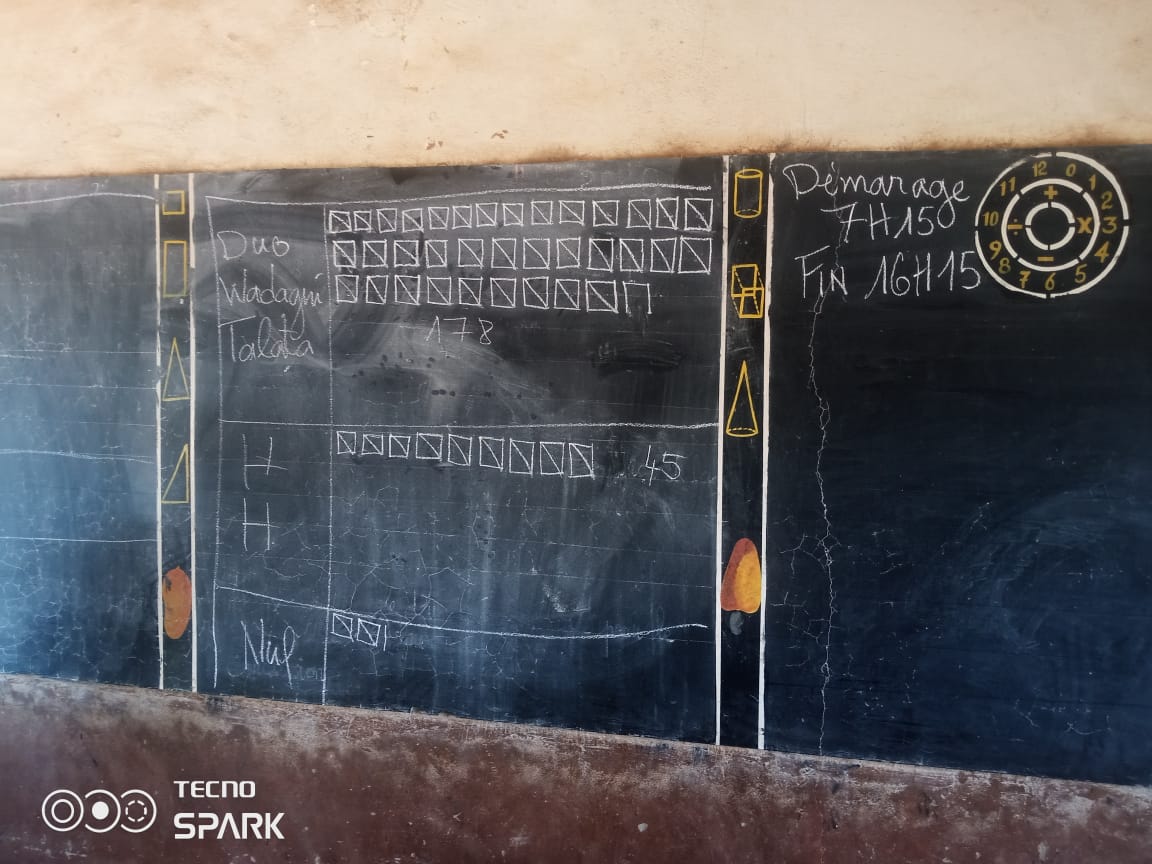 Duo
Wadagni
Talata
178
H
H
45
Nul
Démarage
7H150
FIN 16H15
12 0 1 2 3 4 5 6 7 8 9 10 11
+ x - ÷
TECNO
SPARK